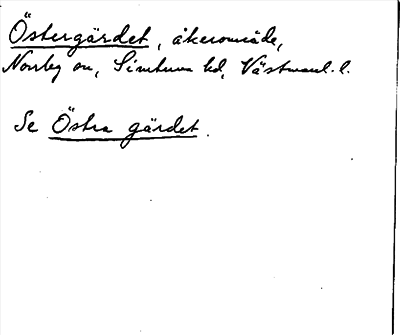 Östergärdet, åkerområde,
Norrby sn, Simtuna hd, Västmanl. l.
Se Östra gärdet.